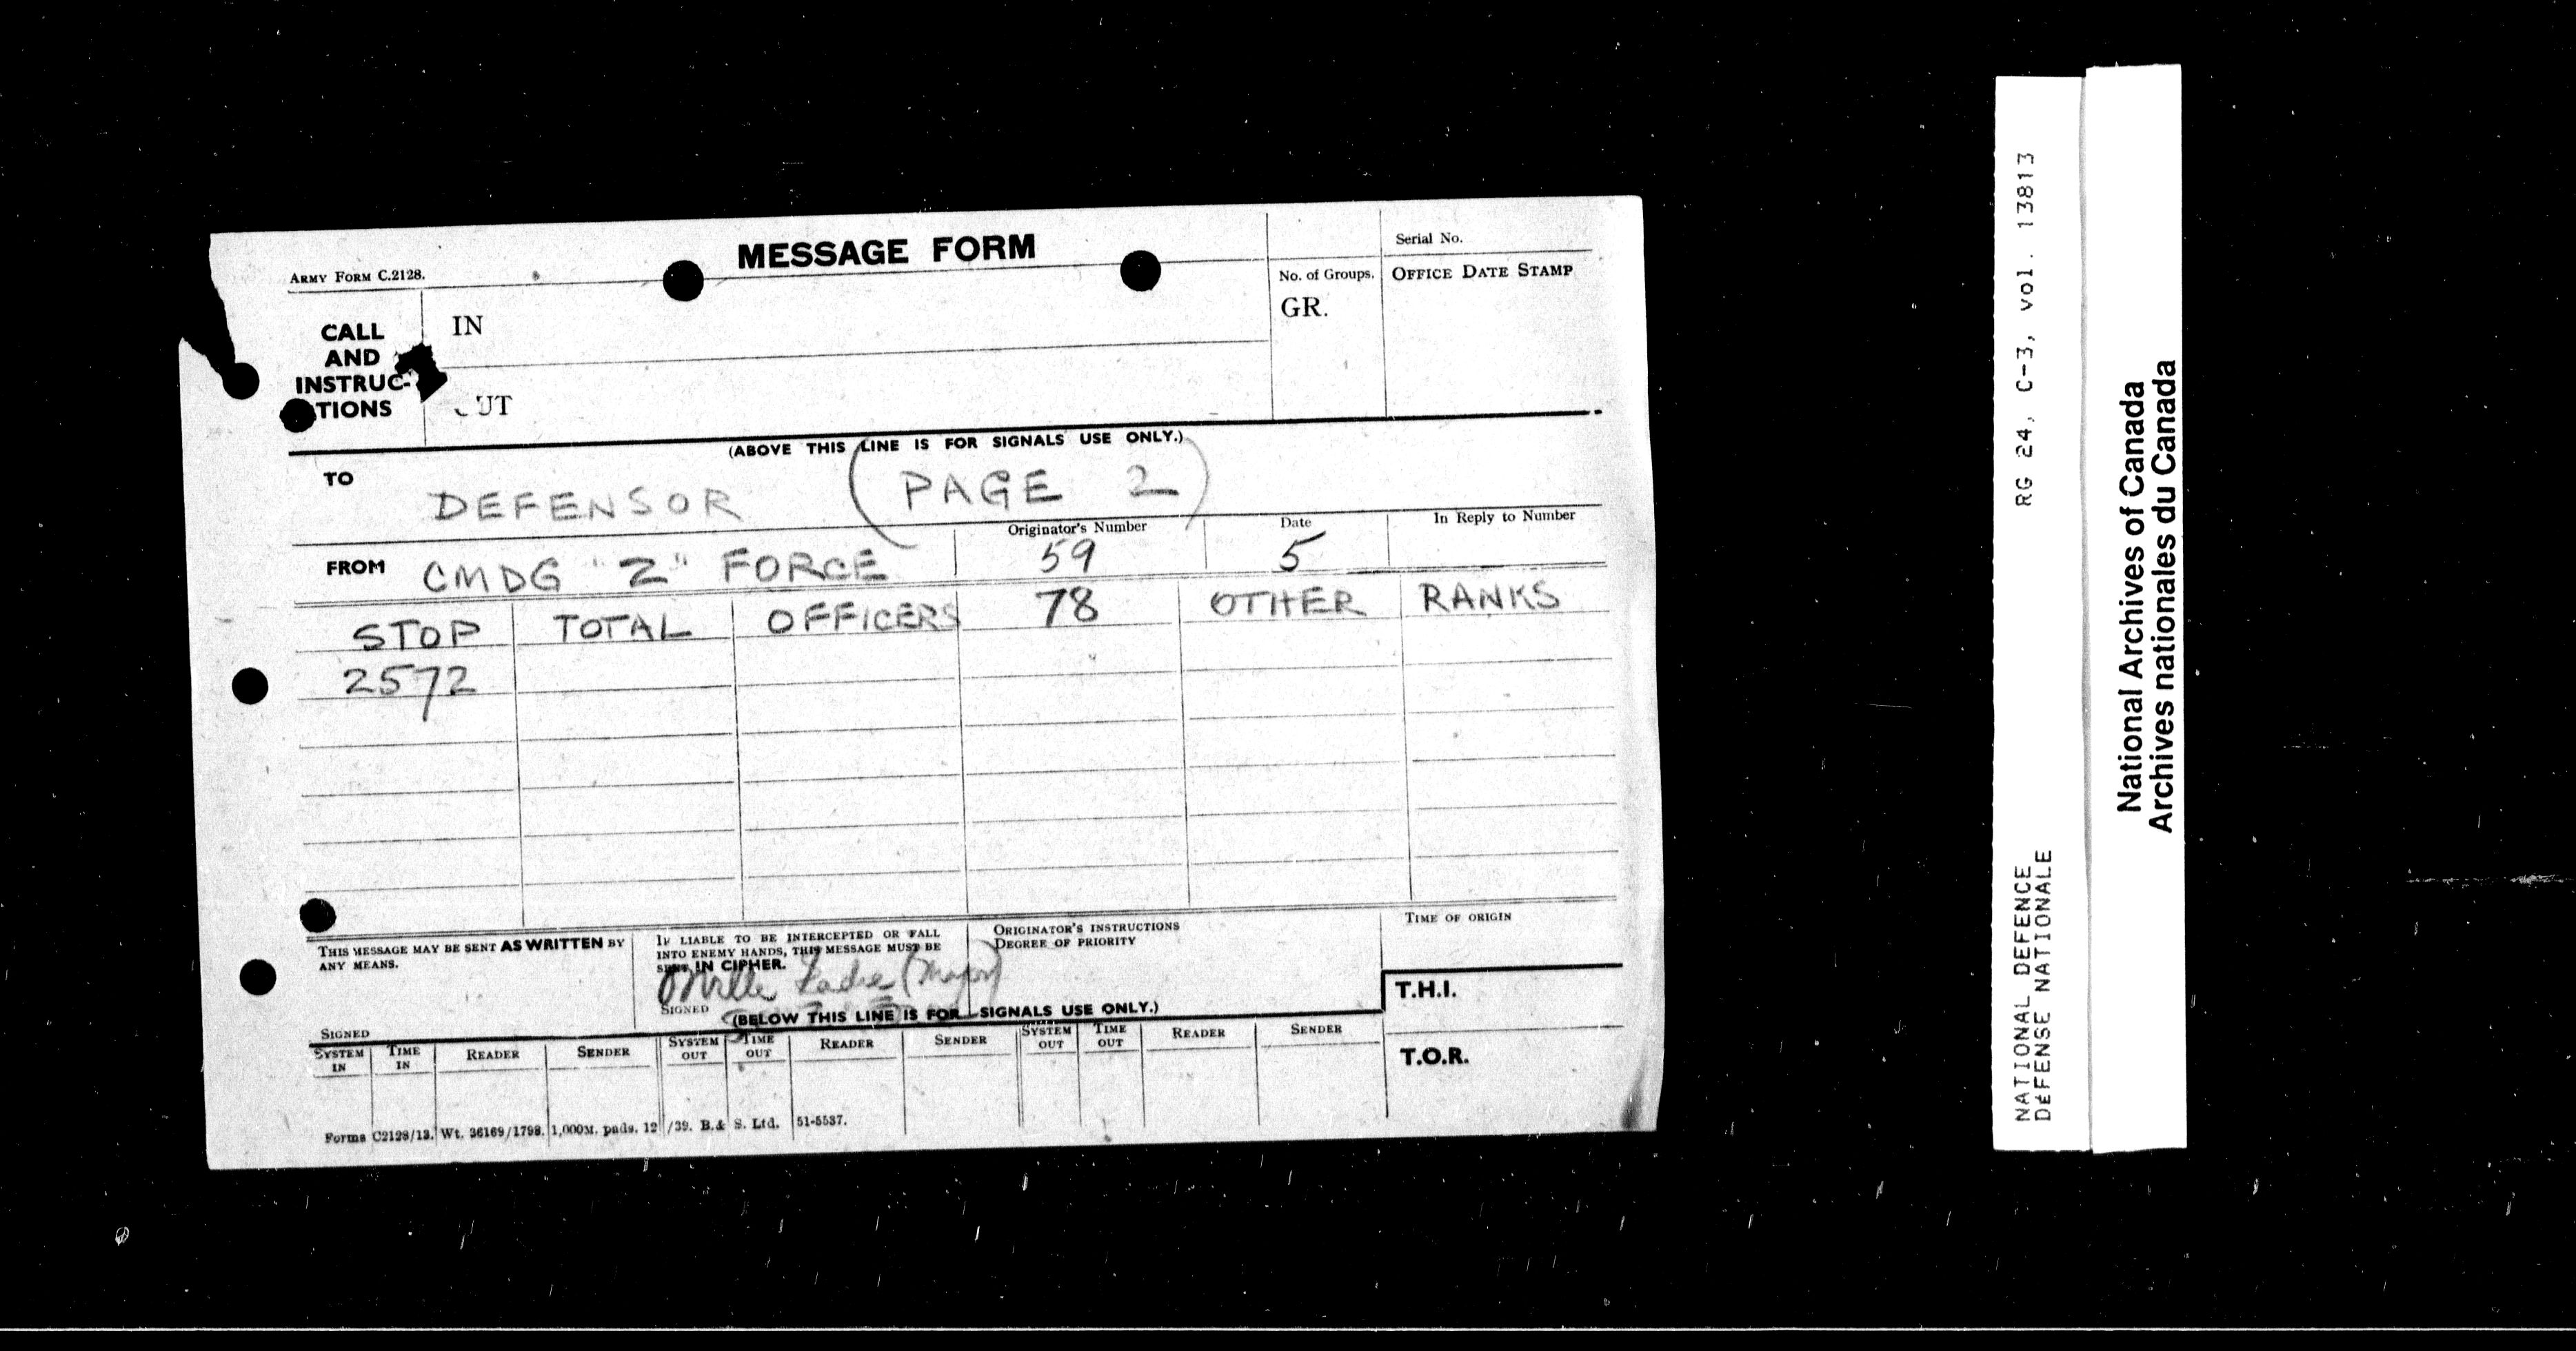 MESSAGE FORM
Serial No.
ARMY FORM C.2128.
No. of Groups.
OFFICE DATE STAMP
GR.
CALL
AND
INSTRUC-
TIONS
IN
UT
(ABOVE THIS LINE IS FOR SIGNALS USE ONLY.)
TO
DEFENSOR (PAGE 2)
Originator's Number
Date
In Reply to Number
FROM CMDG "Z" FORCE 59 5
STOP TOTAL OFFICERS 78 OTHER RANKS
2572
THIS MESSAGE MAY BE SENT AS WRITTEN BY
ANY MEANS.
SIGNED
IF LIABLE TO BE INTERCEPTED OR FALL
INTO ENEMY HANDS, THIS MESSAGE MUST BE
SENT IN CIPHER.
(Major)
SIGNED
ORIGINATOR'S INSTRUCTIONS
DEGREE OF PRIORITY
TIME OF ORIGIN
(BELOW THIS LINE IS FOR SIGNALS USE ONLY.)
T.H.I.
T.O.R.
SYSTEM IN
TIME IN
READER
SENDER
SYSTEM OUT
TIME OUT
READER
SENDER
SYSTEM OUT
TIME OUT
READER
SENDER
Forms C2128/13. Wt. 36169/1798. 1,000M. pads. 12/39. B.& S. Ltd. 51-5537.
NATIONAL DEFENCE RG 24, C-3, vol. 13813
DÉFENSE NATIONALE
National Archives of Canada
Archives nationales du Canada